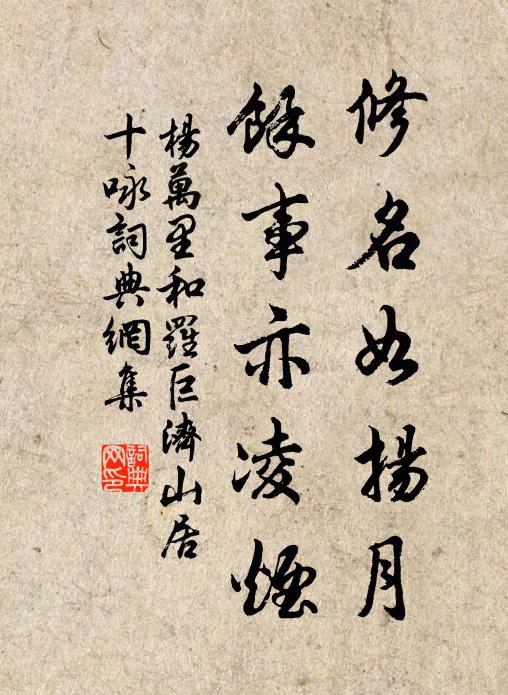 修名如揚月
餘事亦凌煙
楊萬里和羅巨濟山居
十咏詞典網集
詞典网印